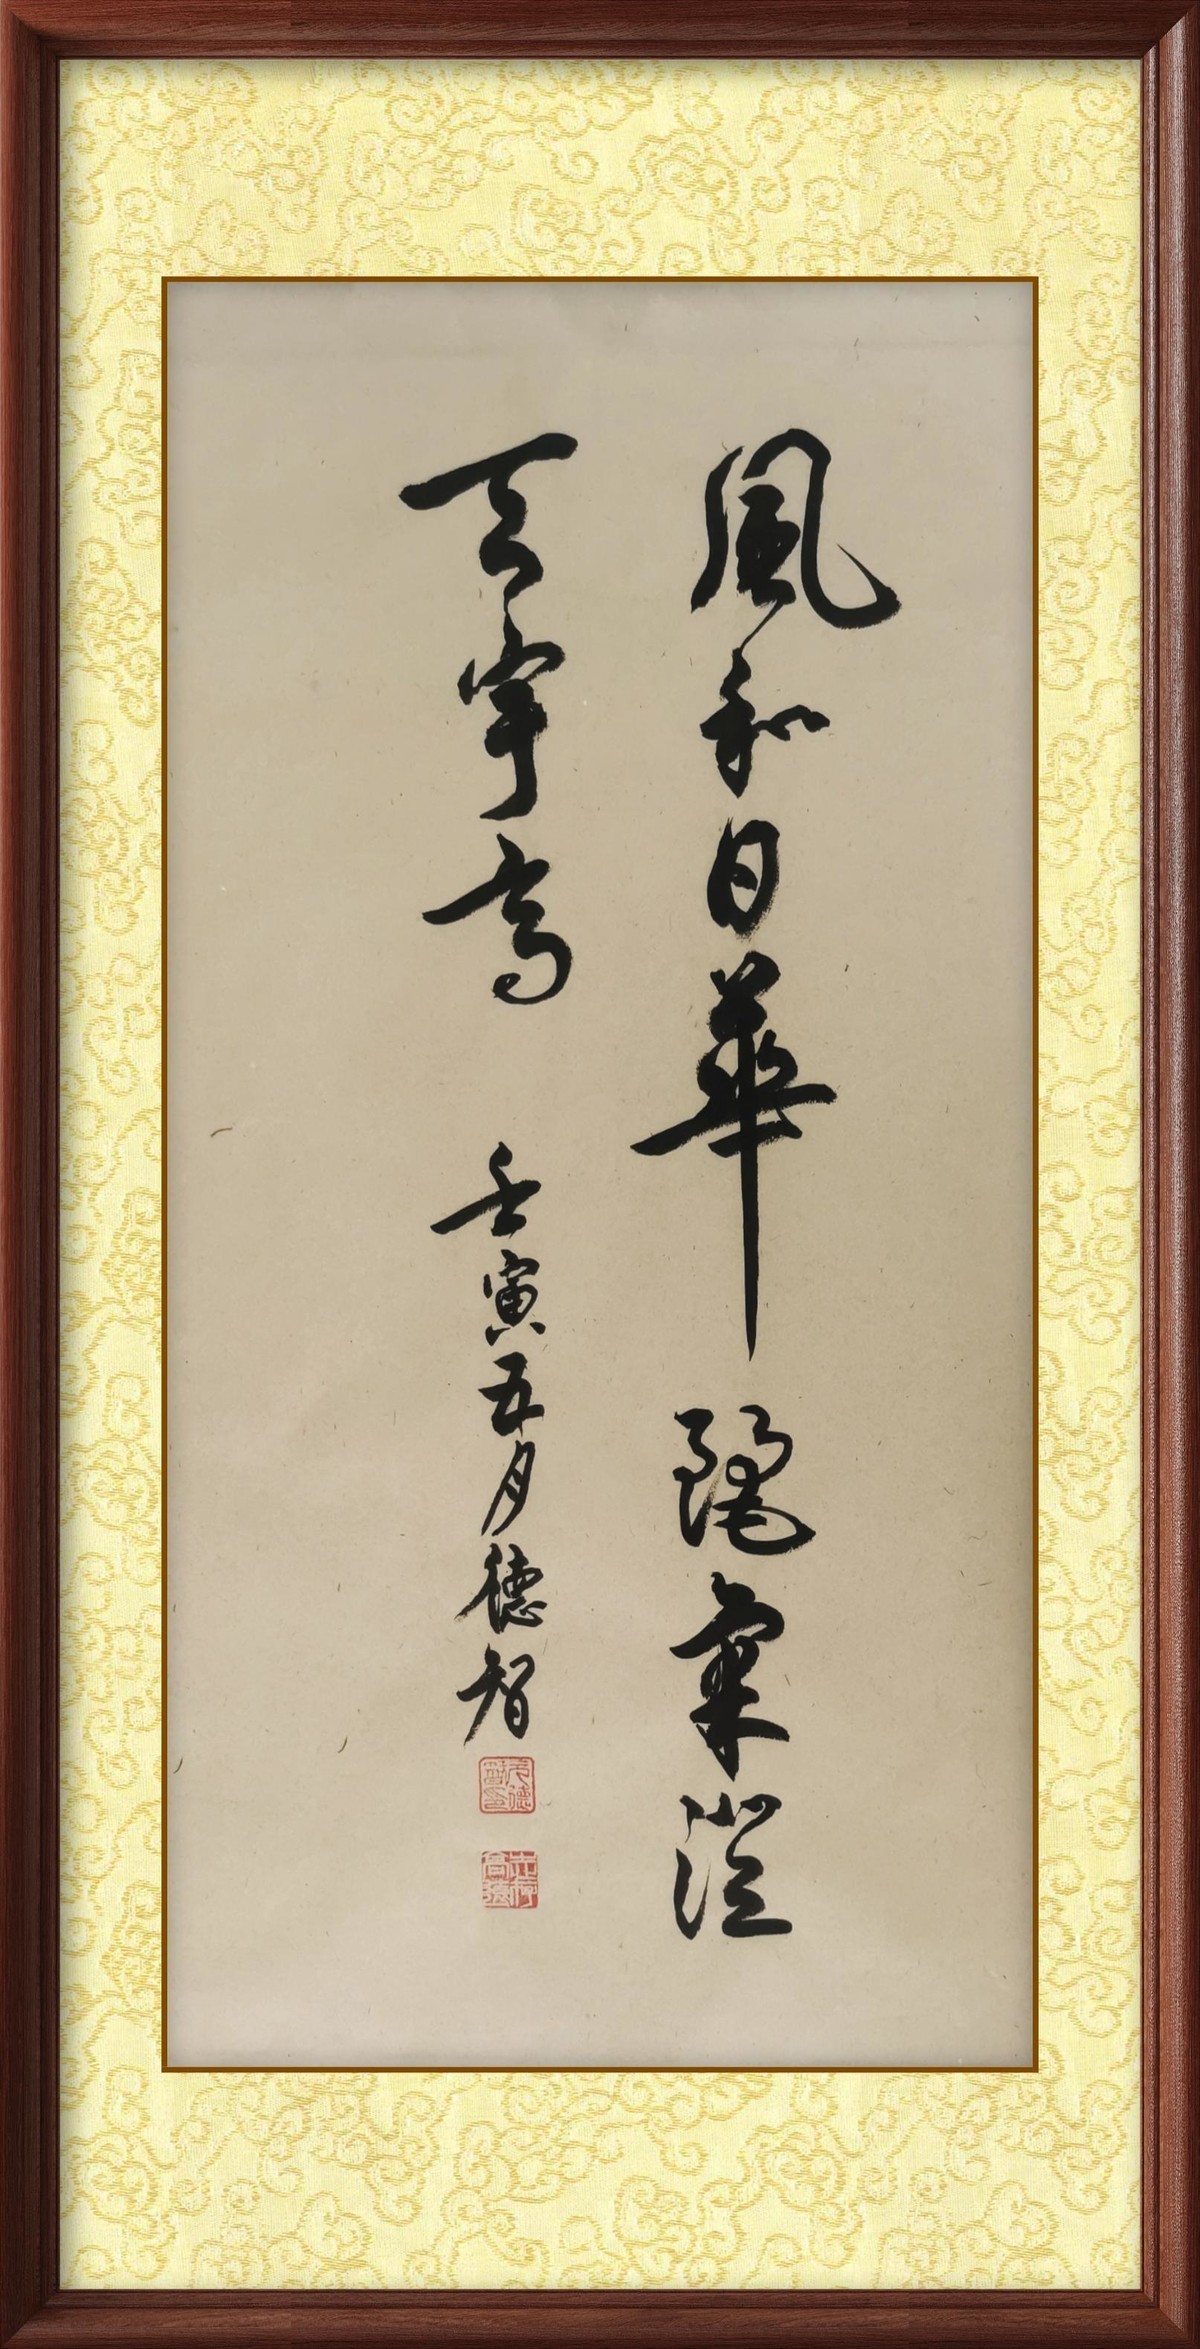 風和日華麗氣澄
天宇高
壬寅五月德智